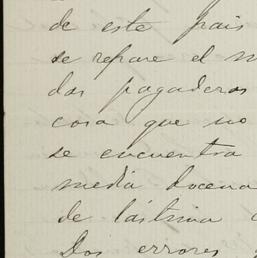 de este pais
se repare el m
das pagaderas
cosa que no
se encuentra
media docena
de lástima
Dos errores